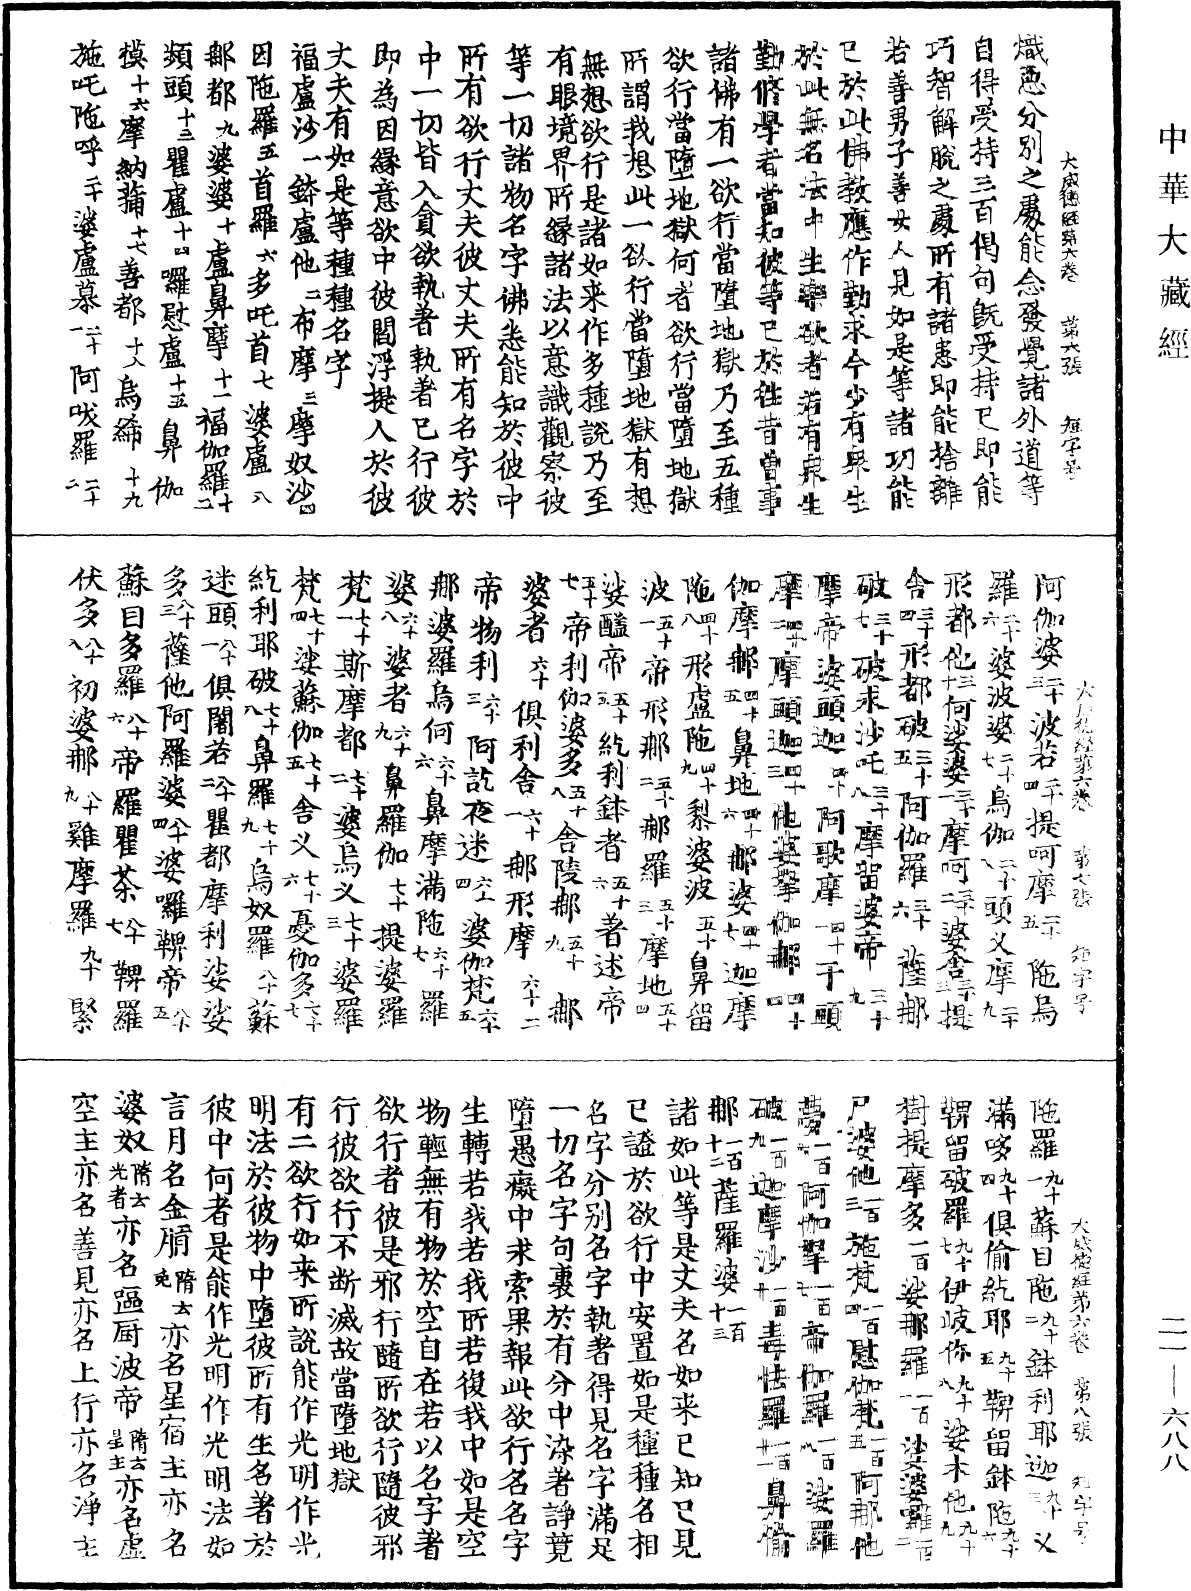 中華大藏經
二一—六八八
大威德經第六卷 第六張 短字号
熾惡分別之處能念發覺諸外道等
自得受持三百偈句既受持已即能
巧智解脫之處所有諸恚即能捨離
若善男子善女人見如是等諸功能
已於此佛教應作勤求今少有眾生
於此無名法中生樂欲者若有眾生
勤修學者當知彼等已於往昔曾事
諸佛有一欲行當墮地獄乃至五種
欲行當墮地獄何者欲行當墮地獄
所謂我想此一欲行當墮地獄有想
無想欲行是諸如来作多種說乃至
有眼境界所緣諸法以意識觀察彼
等一切諸物名字佛悉能知於彼中
所有欲行丈夫彼丈夫所有名字於
中一切皆入貪欲執著執著已行彼
即為因緣意欲中彼閻浮提人於彼
丈夫有如是等種種名字
福盧沙一鉾盧他二布摩三摩奴沙四
因陁羅五首羅六多吒首七婆盧八
那都九婆婆十盧鼻摩十一福伽羅十二
頞頭十三瞿盧十四囉慰盧十五鼻伽
摸十六摩納蒲十七善都十八烏締十九
施吒陁呼二十婆盧慕二十一阿呅羅二十二
大威德經第六卷 第七張 短字号
阿伽婆二十三波若二十四提呵摩二十五陁烏
羅二十六婆波婆二十七烏伽二十八頭义摩二十九
形都他三十何娑婆三十一摩呵三十二婆舍三十三提
舍三十四形都破三十五阿伽羅三十六薩那
破三十七破求沙吒三十八摩留婆帝三十九
摩帝婆頭迦四十阿歌摩四十一于頭
摩四十二摩頭迦四十三他婆拏伽那四十四
伽摩那四十五鼻地四十六那婆四十七迦摩
陁四十八形盧陁四十九梨婆波五十鼻留
波五十一帝形那五十二那羅五十三摩地五十四
娑醯帝五十五紇利鉢者五十六著述帝
五十七帝利伽婆多五十八舍陵那五十九那
婆者六十俱利舍六十一那形摩六十二
帝物利六十三阿訖夜迷六十四婆伽梵六十五
那婆羅烏何六十六鼻摩滿陁六十七羅
婆六十八婆者六十九鼻羅伽七十提婆羅
梵七十一斯摩都七十二婆烏义七十三婆羅
梵七十四娑蘇伽七十五舍义七十六憂伽多七十七
紇利耶破七十八鼻羅七十九烏奴羅八十蘇
迷頭八十一俱闍若八十二瞿都摩利娑娑
多八十三薩他阿羅婆八十四婆囉鞞帝八十五
蘇目多羅八十六帝羅瞿荼八十七鞞羅
伏多八十八初婆那八十九雞摩羅九十緊
大威德經第六卷 第八張 短字号
陁羅九十一蘇目陁九十二鉢利耶迦九十三义
滿哆九十四俱偷紇耶九十五鞞留鉢陁九十六
鞞留破羅九十七伊岐你九十八娑木他九十九
樹提摩多一百娑那羅一百一沙婆囉一百二
尸婆他一百三施梵一百四慰伽梵一百五阿那他
一百六阿伽拏一百七帝伽羅一百八娑羅
破一百九迦摩沙一百十毒怯羅一百十一鼻偷
那一百十二薩羅婆一百十三
諸如此等是丈夫名如来已知已見
已證於欲行中安置如是種種名相
名字分別名字執著得見名字滿足
一切名字句裹於有分中染著諍競
墮愚癡中求索果報此欲行名名字
生轉若我若我所若復我中如是空
物輕無有物於空自在若以名字著
欲行者彼是邪行隨所欲行隨彼邪
行彼欲行不断滅故當墮地獄
有二欲行如来所說能作光明作光
明法於彼物中墮彼所有生名著於
彼中何者是能作光明作光明法如
言月名金捐隋云兔亦名星宿主亦名
婆奴隋云光者亦名謳厨波帝隋云星主亦名虛
空主亦名善見亦名上行亦名淨主